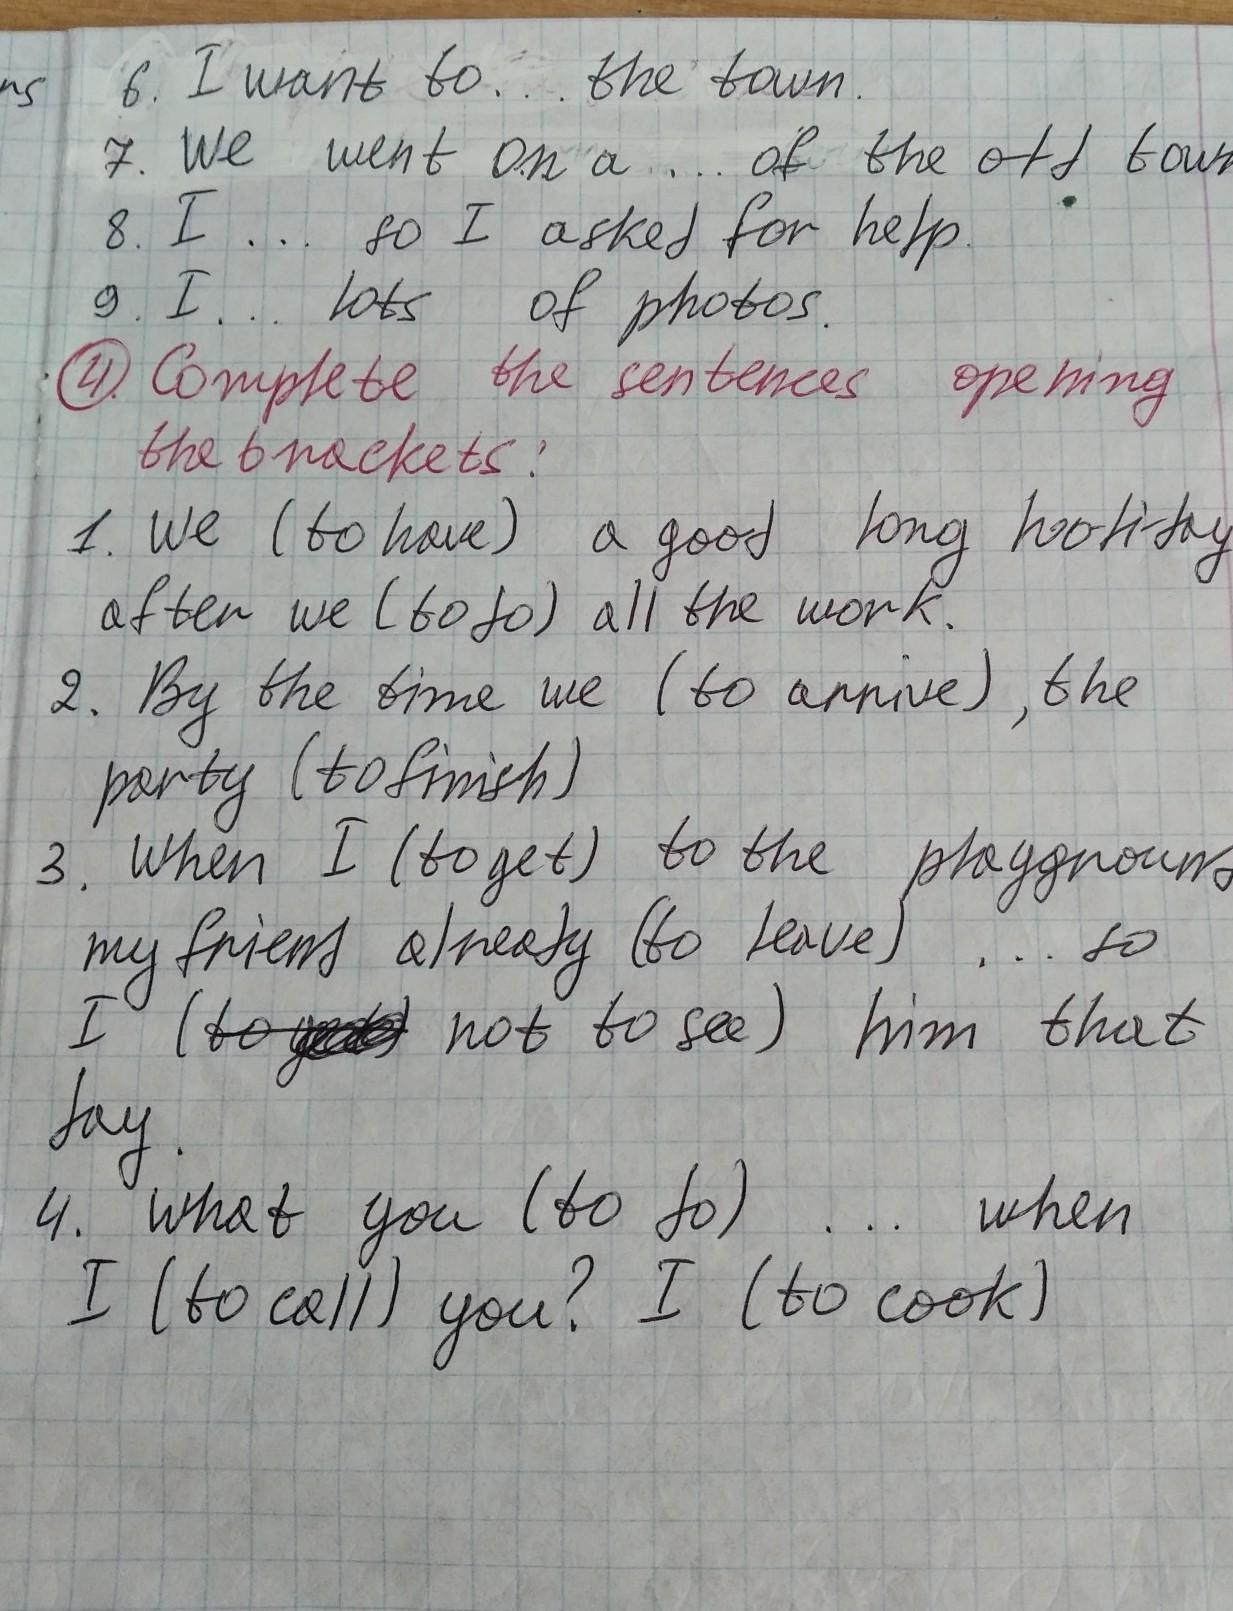 ns
6. I want to... the town.
7. We went on a ... of the old town
8. I ... so I asked for help.
9. I... lots of photos.
4. Complete the sentences opening
the brackets:
1. We (to have) a good long holiday
after we (to do) all the work.
2. By the time we (to arrive), the
party (to finish)
3. When I (to get) to the playground
my friend already (to leave) ... so
I (to not to see) him that
day.
4. What you (to do) ... when
I (to call) you? I (to cook)